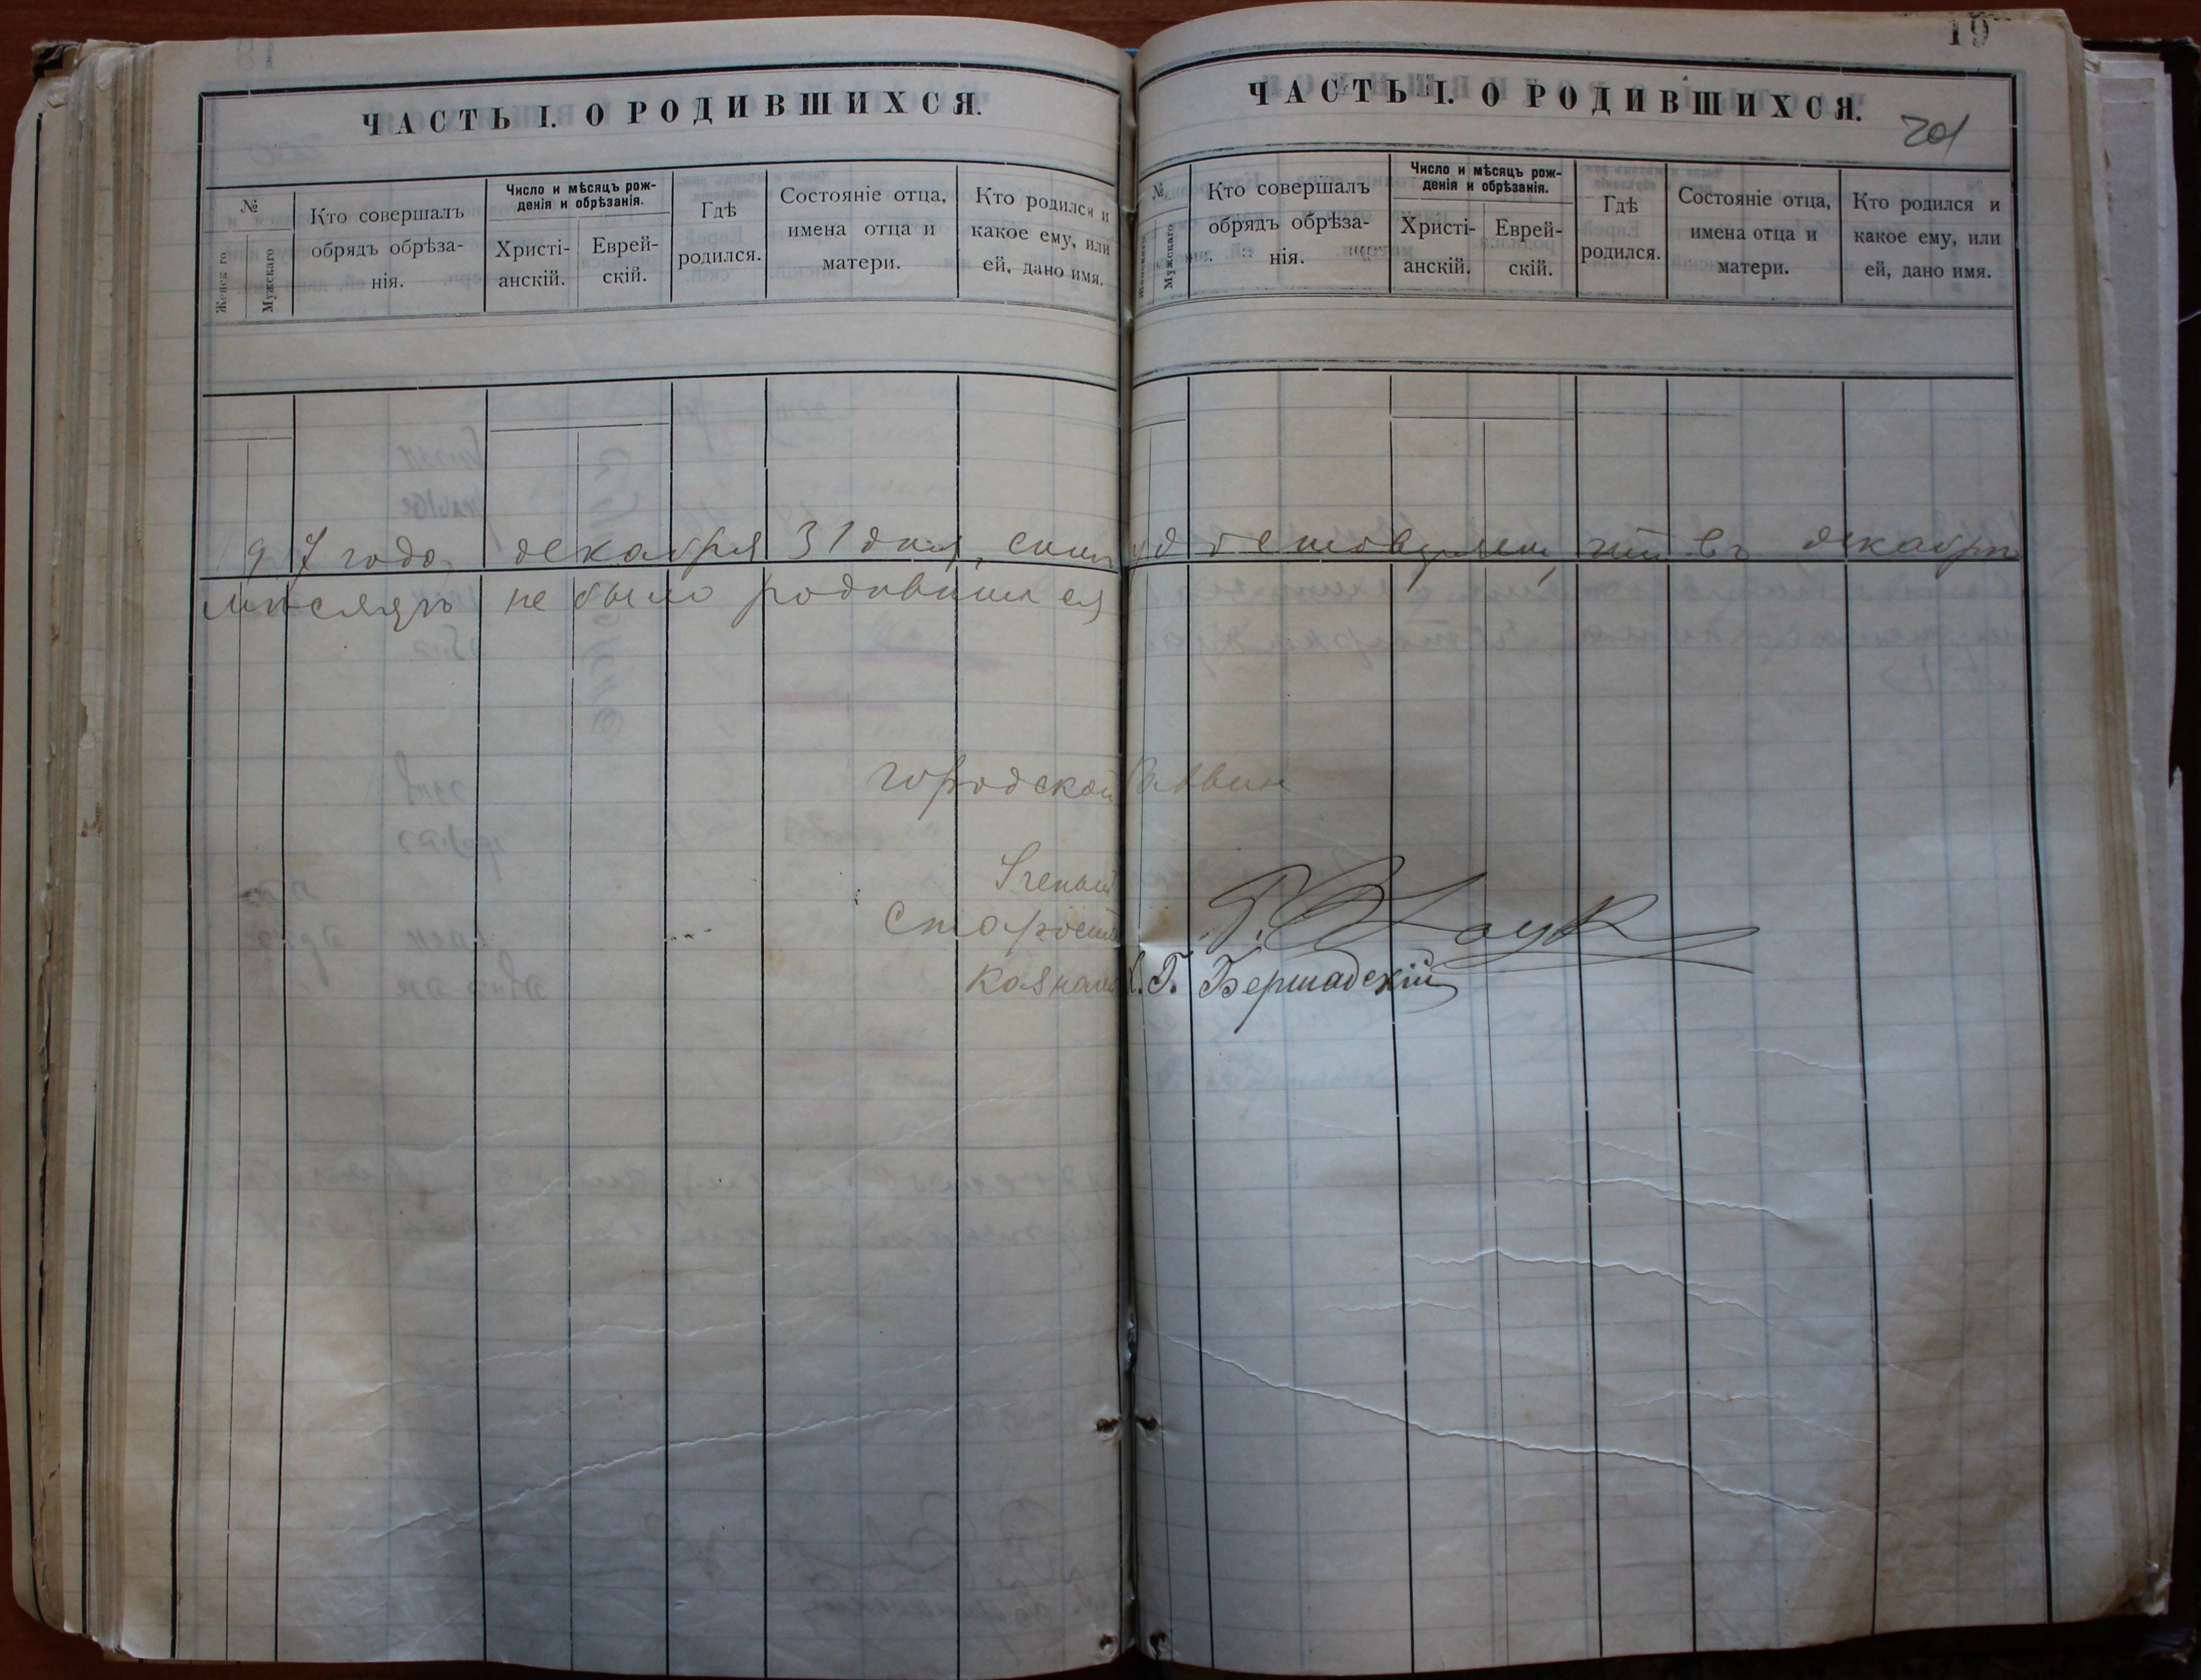 ЧАСТЬ I. О РОДИВШИХСЯ.
№
Женск го
Мужскаго
Кто совершалъ
обрядъ обрѣза-
нія.
Число и мѣсяцъ рож-
денія и обрѣзанія.
Христі-
анскій.
Еврей-
скій.
Гдѣ
родился.
Состояніе отца,
имена отца и
матери.
Кто родился и
какое ему, или
ей, дано имя.
19
ЧАСТЬ I. О РОДИВШИХСЯ.
201
№
Женскаго
Мужскаго
Кто совершалъ
обрядъ обрѣза-
нія.
Число и мѣсяцъ рож-
денія и обрѣзанія.
Христі-
анскій.
Еврей-
скій.
Гдѣ
родился.
Состояніе отца,
имена отца и
матери.
Кто родился и
какое ему, или
ей, дано имя.
97 года, декабря 31 дня, симъ удостовѣряемъ, что въ декабрѣ
мѣсяцѣ не было родившихся
городской Раввин
Ученый
Староста
Казначей Г. Бершадскій